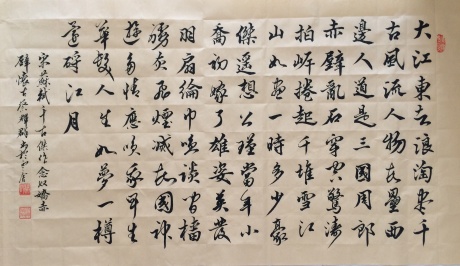 大江東去浪淘盡千
古風流人物故壘西
邊人道是三國周郎
赤壁亂石穿空驚濤
拍岸捲起千堆雪江
山如畫一時多少豪
傑遙想公瑾當年小
喬初嫁了雄姿英發
羽扇綸巾談笑間檣
櫓灰飛煙滅故國神
遊多情應笑我早生
華髮人生如夢一樽
還酹江月
宋蘇軾千古傑作念奴嬌赤
壁懷古